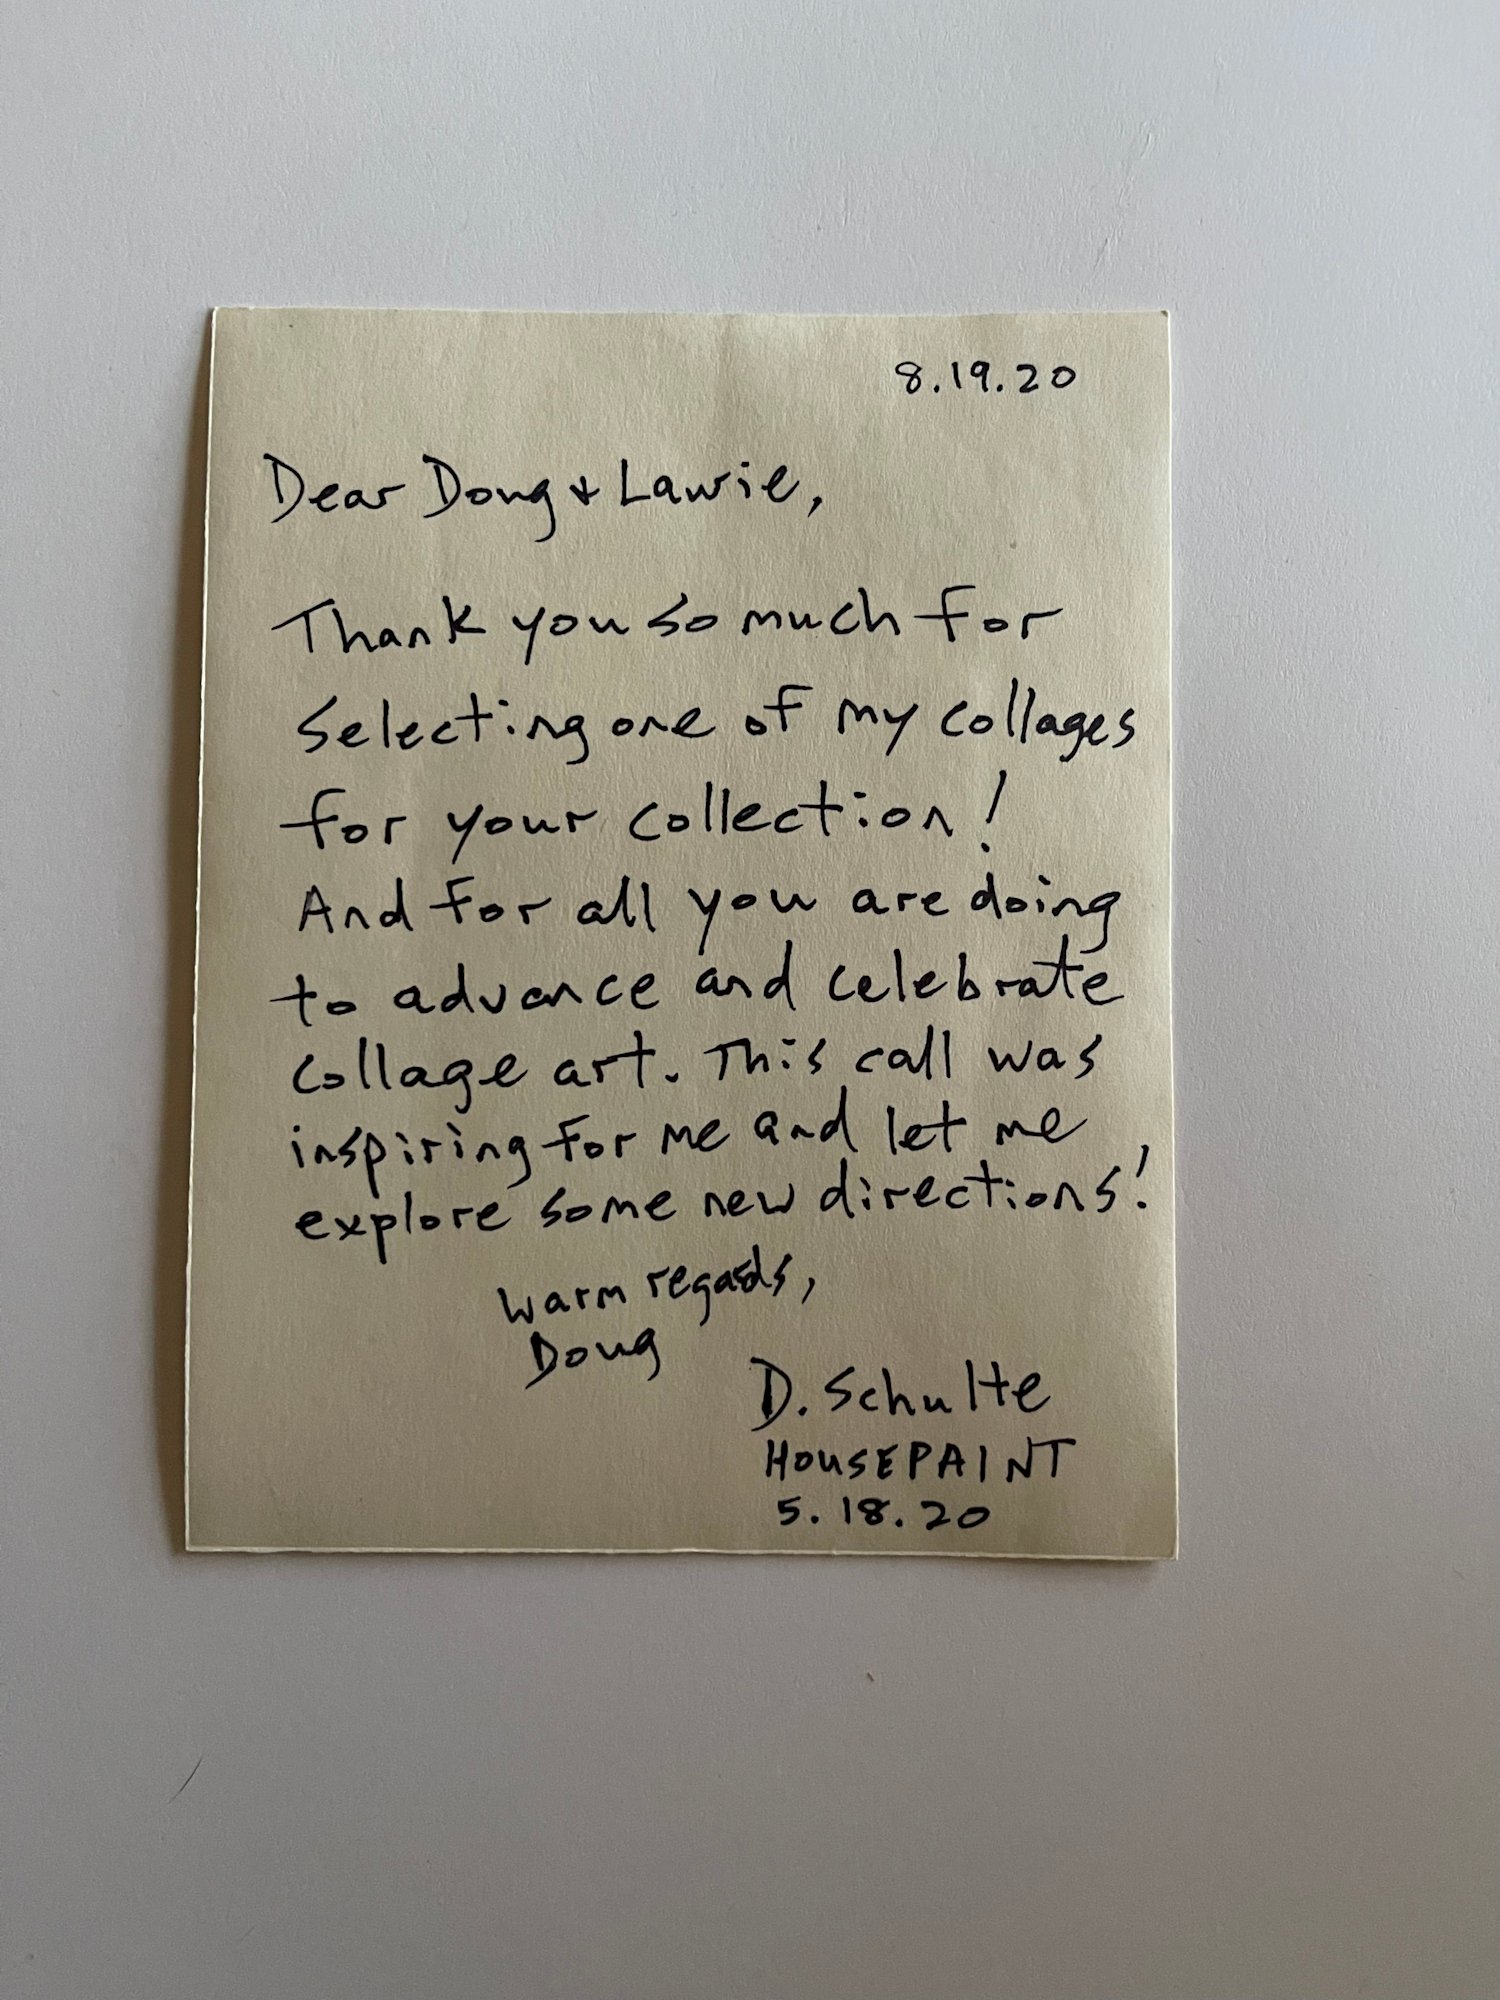 8.19.20
Dear Doug + Laurie,
Thank you so much for
selecting one of my collages
for your collection!
And for all you are doing
to advance and celebrate
collage art. This call was
inspiring for me and let me
explore some new directions!
Warm regards,
Doug
D. Schulte
HOUSEPAINT
5.18.20